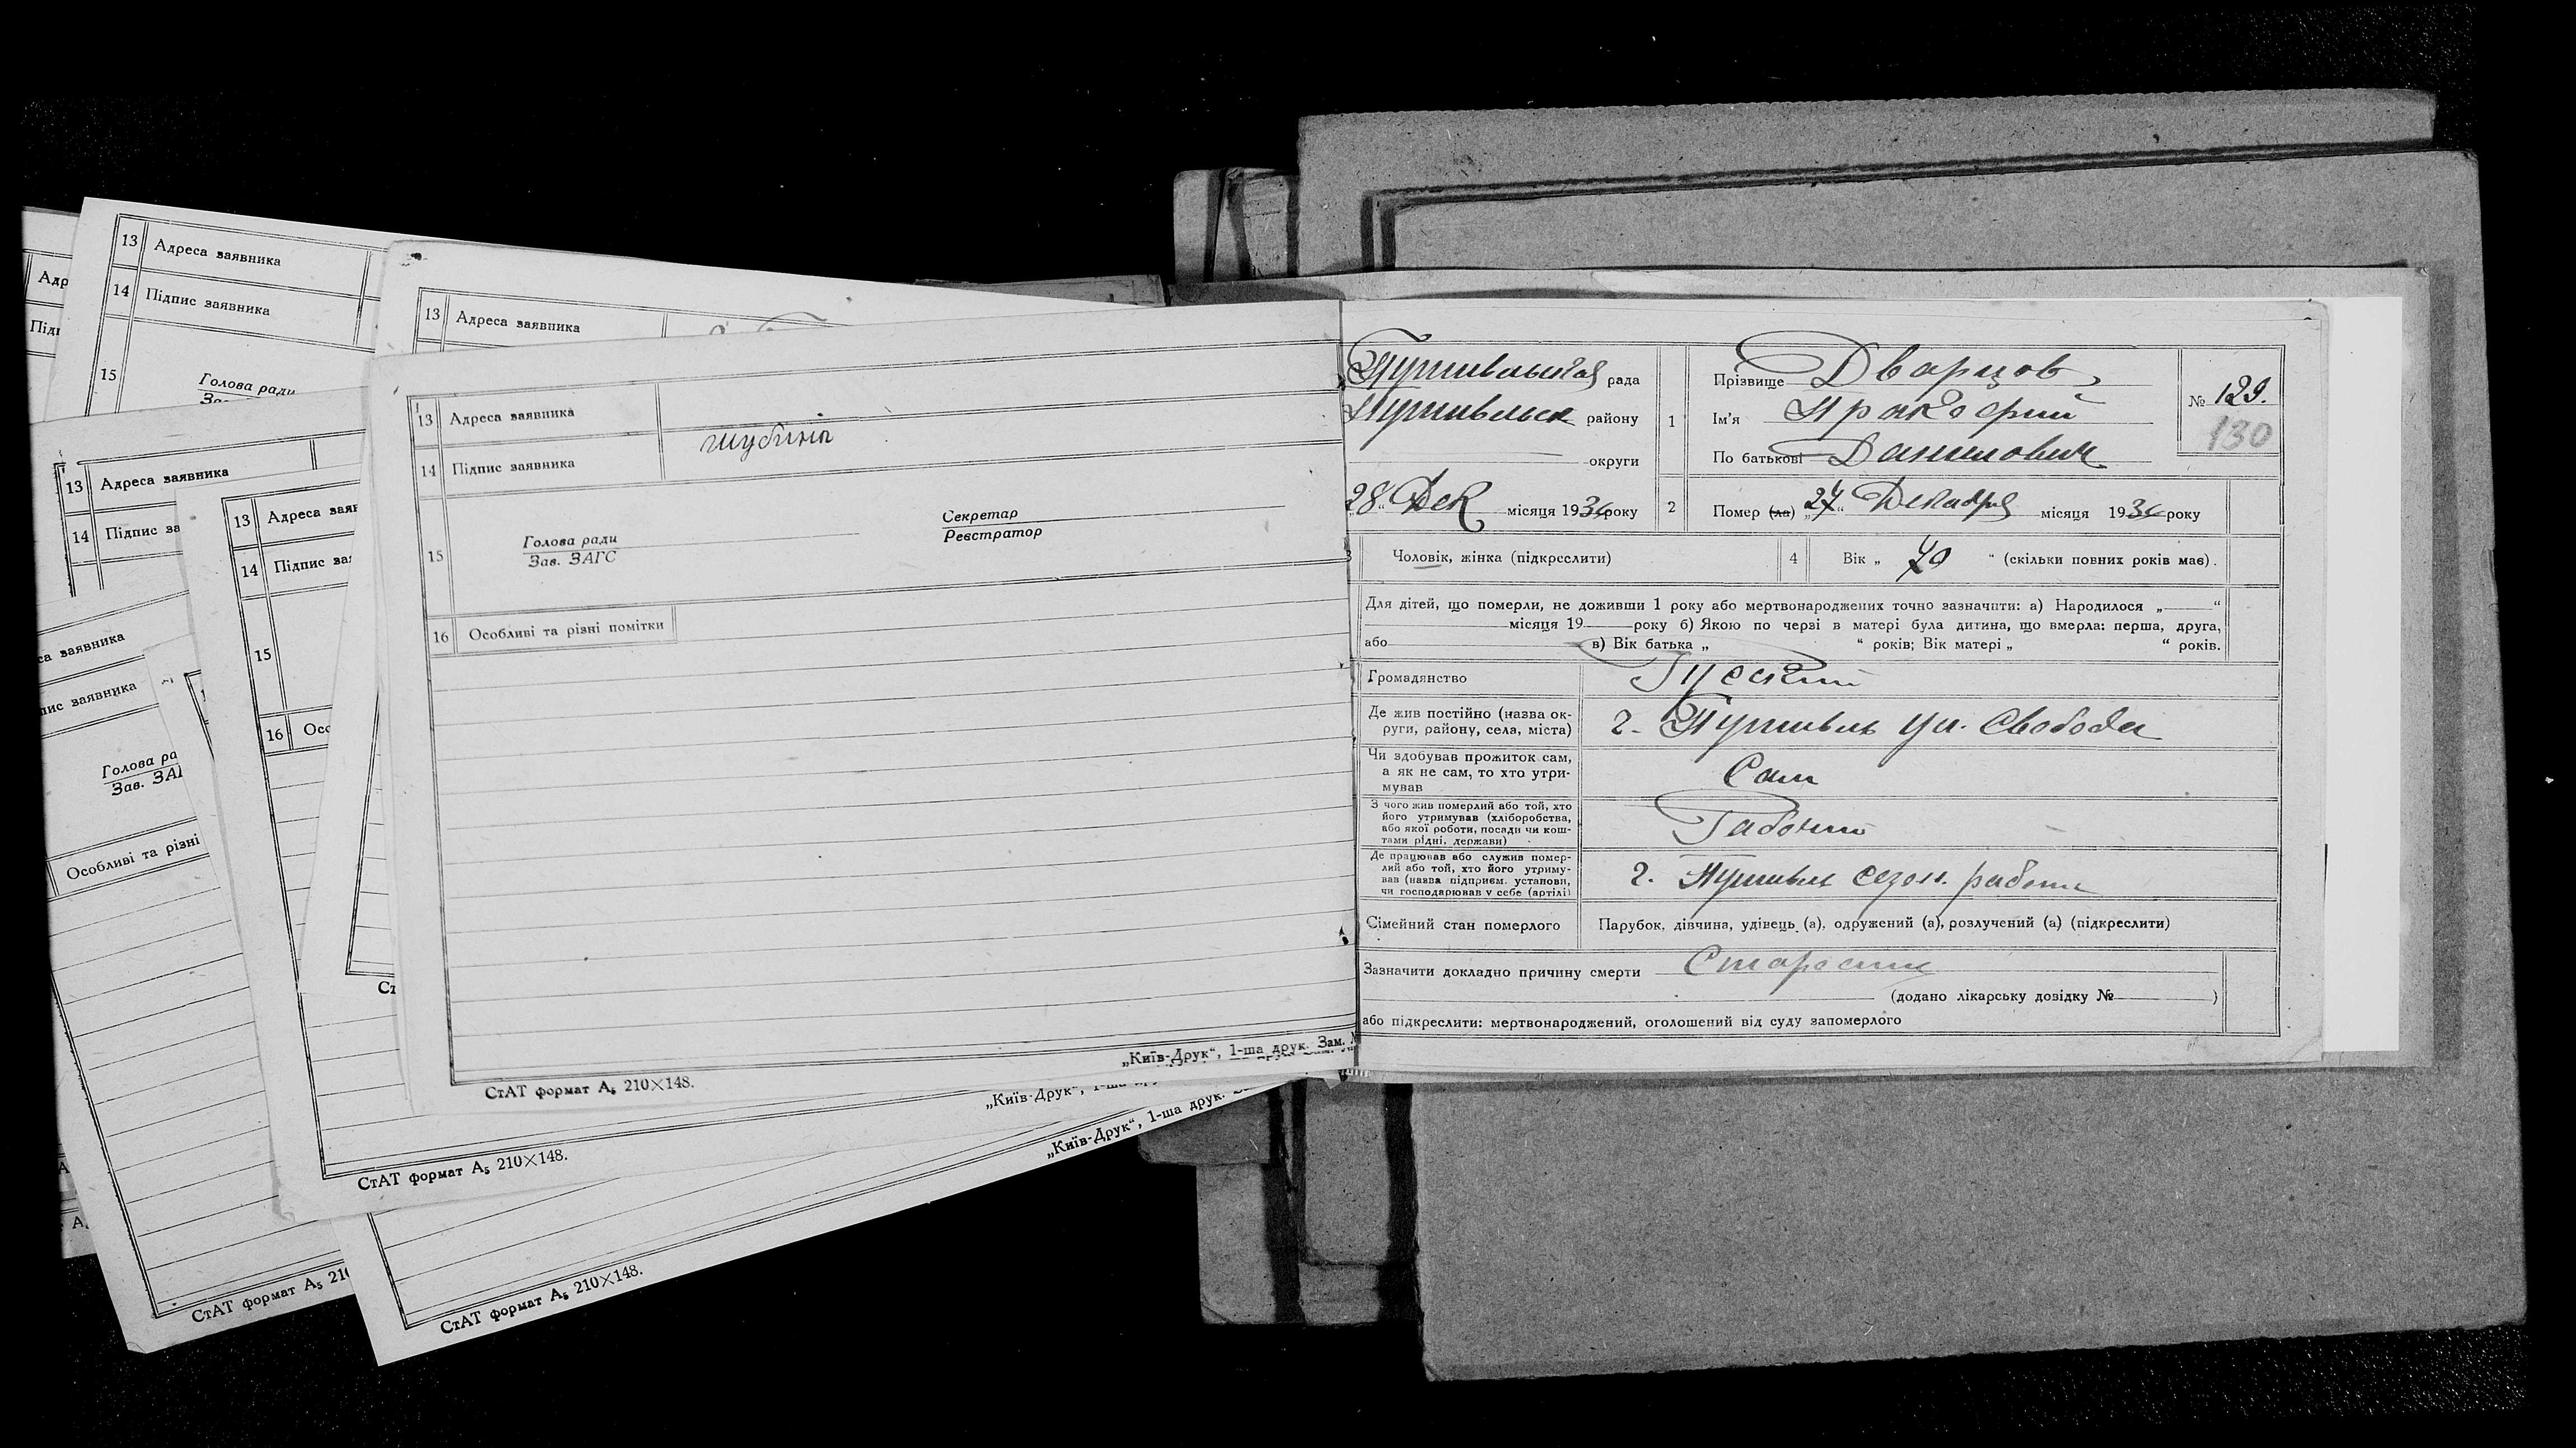 13 Адреса заявника
14 Підпис заявника
15
Голова ради
13 Адреса заявника
Адр
Підп
13 Адреса заявника
14 Підпис за
13 Адреса заяв
14 Підпис за
15
16 Осо
са заявника
пис заявника
Голова ра
Зав. ЗАГ
Особливі та різні
13 Адреса заявника
шубина
14 Підпис заявника
15
Голова ради
Зав. ЗАГС
Секретар
Реєстратор
16 Особливі та різні помітки
„Київ-Друк“, 1-ша друк. Зам.
СтАТ формат А₅ 210×148.
„Київ-Друк“, 1-ша
СтАТ формат А₅ 210×148.
„Київ-Друк“, 1-ша друк.
СтАТ формат А₅ 210
СтАТ формат А₅ 210×148.
Путивльская рада
Путивльск району
округи
28 Дек місяця 1934 року
1
Прізвище Дварцов
Ім'я Пракофий
По батькові Данилович
№ 129.
130
2 Помер (ла) „27“ Декабря місяця 1934 року
3 Чоловік, жінка (підкреслити)
4 Вік „ 70 “ (скільки повних років має).
Для дітей, що померли, не доживши 1 року або мертвонароджених точно зазначити: а) Народилося „ “
місяця 19 року б) Якою по черзі в матері була дитина, що вмерла: перша, друга,
або в) Вік батька „ “ років; Вік матері „ “ років.
Громадянство Руский
Де жив постійно (назва ок-
руги, району, села, міста) г. Путивль ул. Свободы
Чи здобував прожиток сам,
а як не сам, то хто утри-
мував Сам
З чого жив померлий або той, хто
його утримував (хліборобства,
або якої роботи, посади чи кош-
тами рідні, держави) Рабочий
Де працював або служив помер-
лий або той, хто його утриму-
вав (назва підприєм. установи,
чи господарював у себе (артілі) г. Путивль сезон. работы
Сімейний стан померлого Парубок, дівчина, удівець (а), одружений (а), розлучений (а) (підкреслити)
Зазначити докладно причину смерти Старости
(додано лікарську довідку № )
або підкреслити: мертвонароджений, оголошений від суду запомерлого